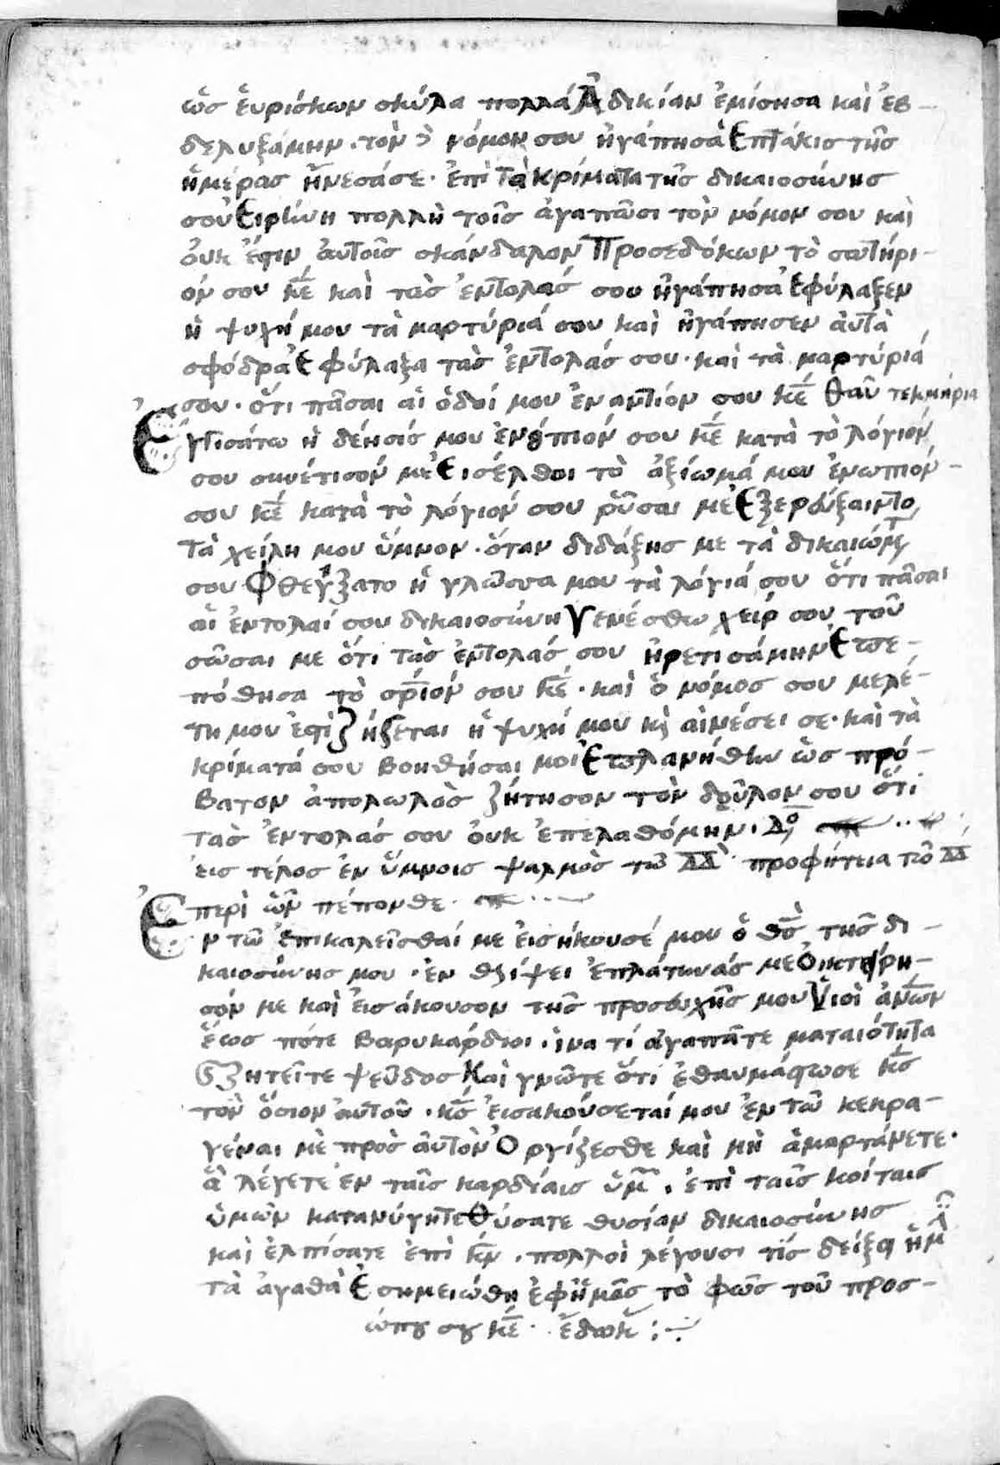 ὡς ἑυρίσκων σκύλα πολλά Ἀδικίαν ἐμίσησα καὶ ἐβ-
δελυξάμην · τὸν δὲ νόμον σου ἠγάπησα Ἑπτάκις τῆς
ἡμέρας ἤνεσά σε · ἐπὶ τὰ κρίματα τῆς δικαιοσύνης
σου Εἰρήνη πολλὴ τοῖς ἀγαπῶσι τὸν νόμον σου καὶ
ὀυκ ἔστιν ἀυτοῖς σκάνδαλον Προσεδόκων τὸ σωτήρι-
όν σου κε καὶ τὰς ἐντολάς σου ἠγάπησα Ἐφύλαξεν
ἡ ψυχή μου τὰ μαρτύριά σου καὶ ἠγάπησεν ἀυτὰ
σφόδρα Ἐφύλαξα τὰς ἐντολάς σου · καὶ τὰ μαρτύριά
σου · ὅτι πᾶσαι αἱ ὁδοί μου ἐναντίόν σου κε θαῦ τεκμήρια
Ἐγγισάτω ἡ δέησίς μου ἐνώπιόν σου κε κατὰ τὸ λόγιόν
σου συνέτισόν με Εἰσέλθοι τὸ ἀξίωμά μου ἐνωπιόν
σου κε κατὰ τὸ λόγιόν σου ῥῦσαι με Ἐξερεύξαιντο
τὰ χείλη μου ὕμνον · ὅταν διδάξης με τὰ δικαιώμτ
σου Φθέγξατο ἡ γλῶσσα μου τὰ λόγιά σου ὅτι πᾶσαι
αἱ ἐντολαί σου δικαιοσύνη Γενέσθω χείρ σου τοῦ
σῶσαι με ὅτι τὰς ἐντολάς σου ἡρετισάμην Ἐπε-
πόθησα τὸ σριόν σου κε · καὶ ὁ νόμος σου μελέ-
τη μου ἐστὶ Ζήσεται ἡ ψυχή μου κ αἰνέσει σε · καὶ τὰ
κρίματά σου βοηθήσαι μοι Ἐπλανήθην ὡς πρό-
βατον ἀπολωλὸς ζήτησον τὸν δοῦλον σου ὅτι
τὰς ἐντολάς σου ὀυκ ἐπελαθόμην · Δο
εἰς τέλος ἐν ὕμνοις ψαλμὸς τῶ δαδ προφήτεια τοῦ δαδ
περὶ ὧν πέπονθε ·
Ἐν τῶ ἐπικαλεῖσθαί με ἐισήκουσέ μου ὁ θς τῆς δι-
καιοσύνης μου · ἐν θλίψει ἐπλάτυνάς με Οἰκτείρη-
σόν με καὶ ἐισάκουσον τῆς προσευχῆς μου Υἱοὶ ἀνων
ἕως πότε βαρυκάρδιοι · ἱνα τί ἀγαπᾶτε ματαιότητα
ζητεῖτε ψεῦδος Καὶ γνῶτε ὅτι ἐθαυμάστωσε κς
τὸν ὅσιον ἀυτοῦ · κς ἐισακούσεταί μου ἐν τῶ κεκρα-
γέναι μὲ πρὸς ἀυτὸν Ὀργίζεσθε καὶ μὴ ἁμαρτάνετε ·
ἃ λέγετε ἐν ταῖς καρδίαις ὑμ · ἐπὶ ταῖς κοίταις
ὑμῶν κατανύγητε Θύσατε θυσίαν δικαιοσύνης
καὶ ἐλπίσατε ἐπὶ κν · πολλοὶ λέγουσι τίς δείξει ἡμ
τὰ ἀγαθὰ Ἐσημειώθη ἐφ ἡμᾶς τὸ φῶς τοῦ προσ-
ώπου σου κε · ἔδωκ :